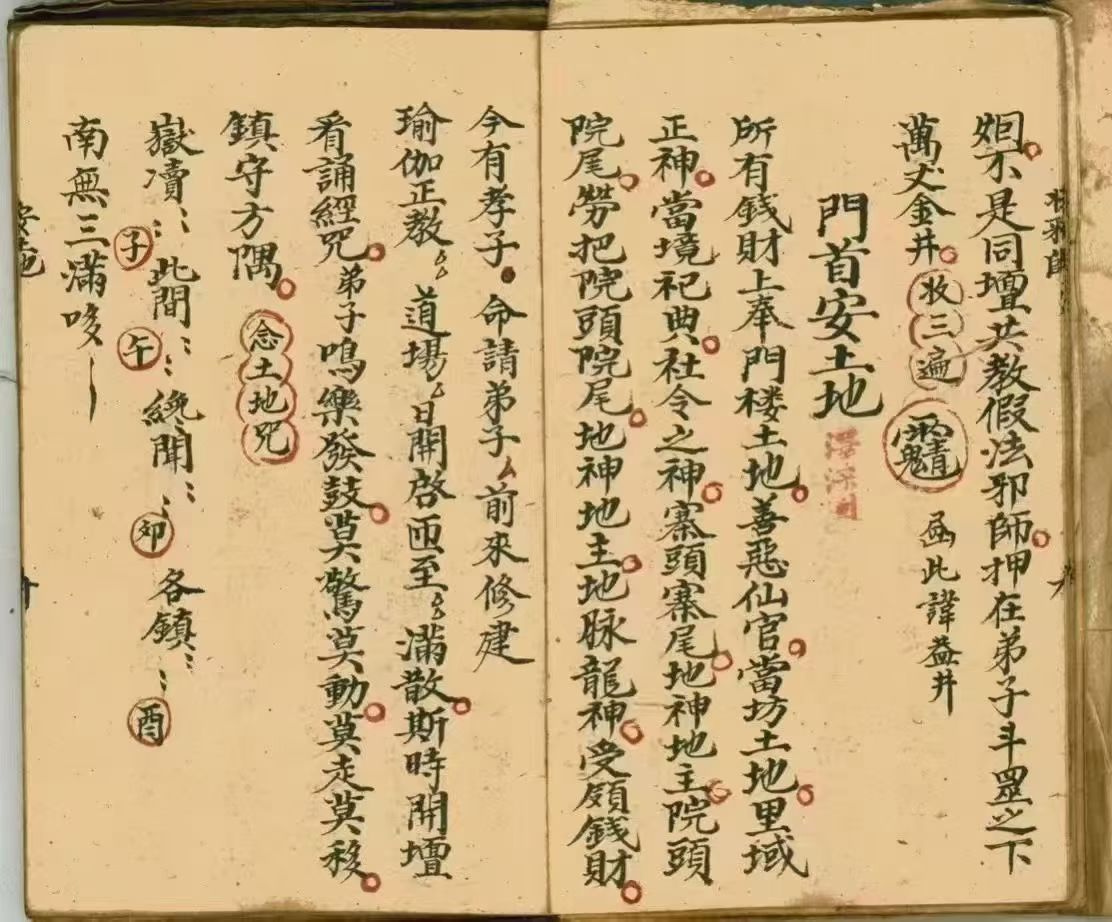 姐不是同壇共教假法邪師押在弟子斗罡之下
萬丈金井收三遍 画此諱蓋井
門首安土地
所有錢財上奉門楼土地善惡仙官當坊土地里域
正神當境祀典社令之神寨頭寨尾地神地主院頭
院尾勞把院頭院尾地神地主地脉龍神受領錢財
今有孝子命請弟子前來修建
瑜伽正教道場日開啓匝至滿散斯時開壇
看誦經咒弟子鳴樂發鼓莫驚莫動莫走莫移
鎮守方隅念土地咒
嶽瀆子此間午纔聞卯各鎮酉
南無三滿哆
安土地